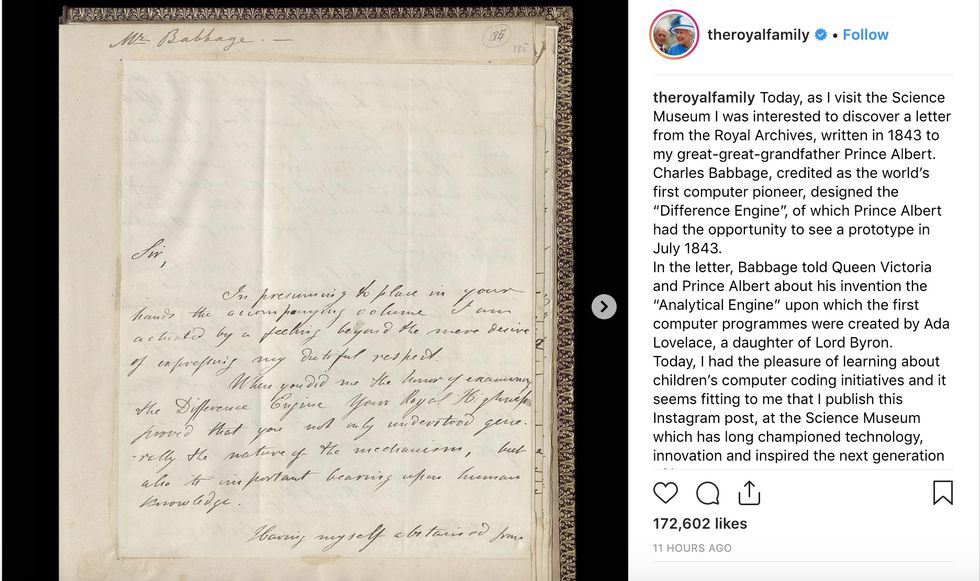 Mr Babbage. —
185
185
Sir,
In presuming to place in your
hands the accompanying volume I am
actuated by a feeling beyond the mere desire
of expressing my dutiful respect.
When you did me the honor of examining
the Difference Engine Your Royal Highness
proved that you not only understood gene-
-rally the nature of the mechanism, but
also its important bearing upon human
knowledge.
Having myself abstained from
theroyalfamily • Follow
theroyalfamily Today, as I visit the Science
Museum I was interested to discover a letter
from the Royal Archives, written in 1843 to
my great-great-grandfather Prince Albert.
Charles Babbage, credited as the world’s
first computer pioneer, designed the
“Difference Engine”, of which Prince Albert
had the opportunity to see a prototype in
July 1843.
In the letter, Babbage told Queen Victoria
and Prince Albert about his invention the
“Analytical Engine” upon which the first
computer programmes were created by Ada
Lovelace, a daughter of Lord Byron.
Today, I had the pleasure of learning about
children’s computer coding initiatives and it
seems fitting to me that I publish this
Instagram post, at the Science Museum
which has long championed technology,
innovation and inspired the next generation
172,602 likes
11 HOURS AGO